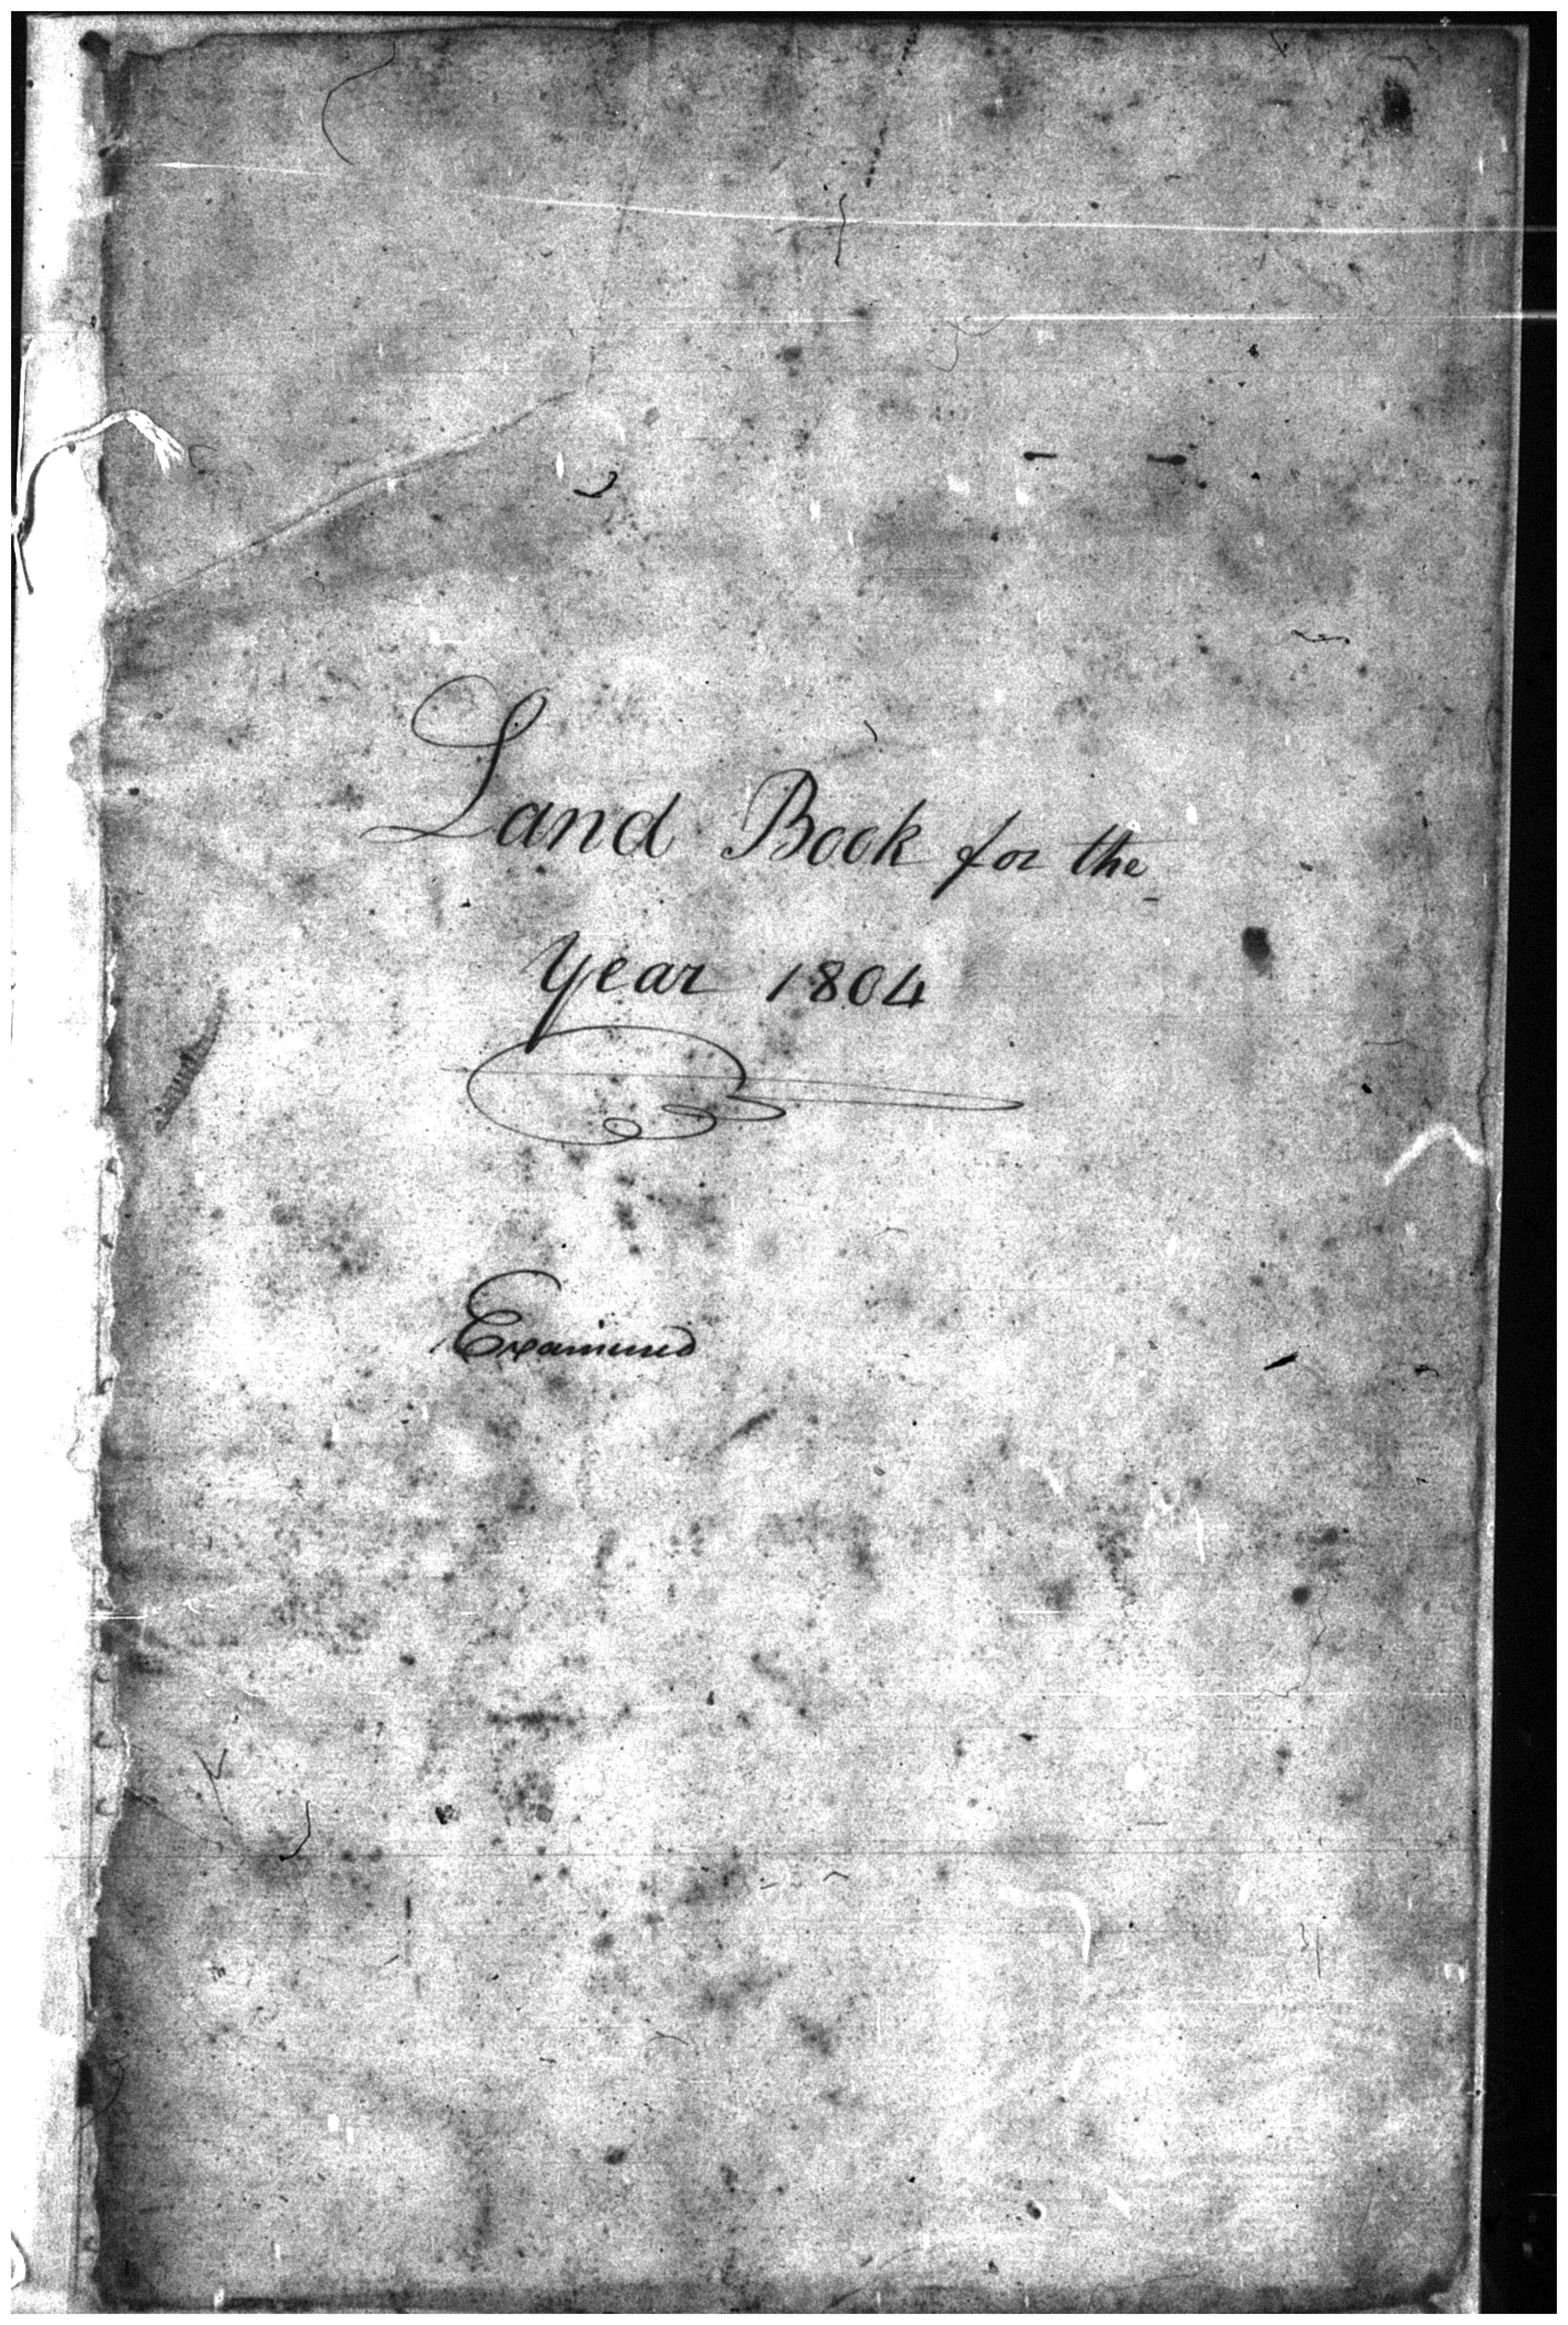 Land Book for the
Year 1804
Examined